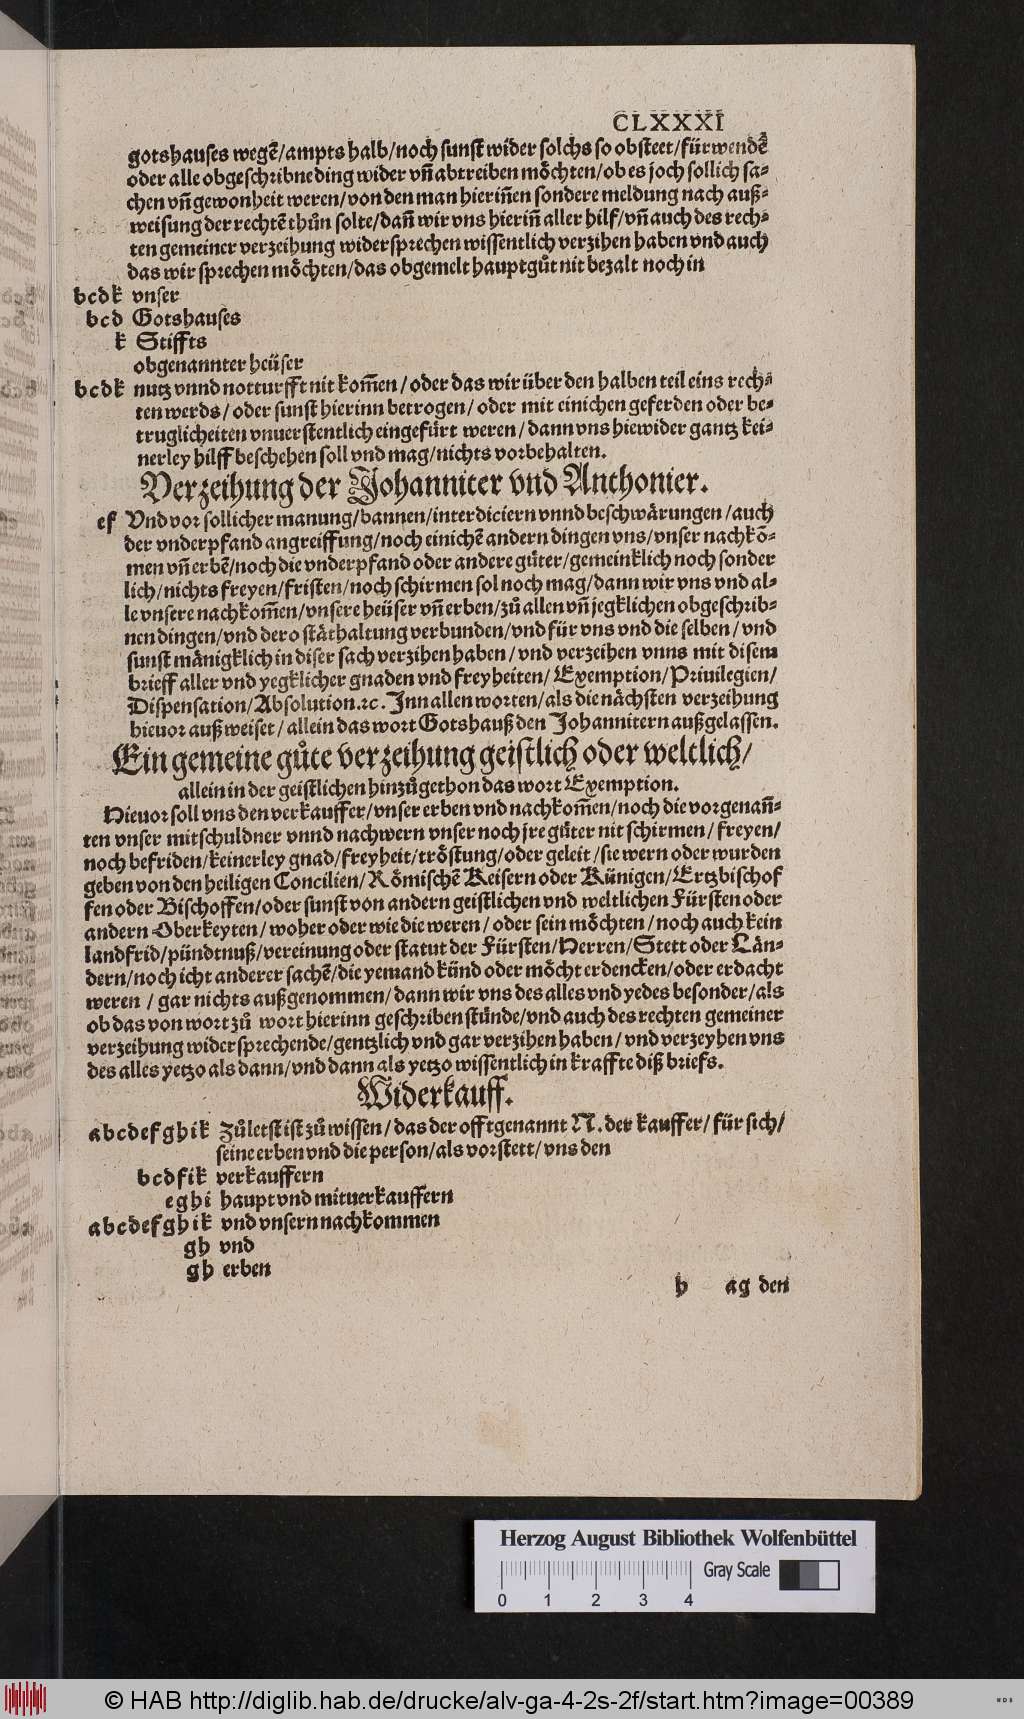 CLXXXI
gotshauses wegẽ/ampts halb/noch sunst wider solchs so obsteet/fürwendẽ
oder alle obgeschribne ding wider vñ abtreiben möchten/ob es joch sollich sa⸗
chen vñ gewonheit weren/von den man hieriñen sondere meldung nach auß⸗
weisung der rechtẽ thůn solte/dañ wir vns hieriñ aller hilf/vñ auch des rech⸗
ten gemeiner verzeihung widersprechen wissentlich verzihen haben vnd auch
das wir sprechen möchten/das obgemelt hauptgůt nit bezalt noch in
bcdk vnser
bcd Gotshauses
k Stiffts
obgenannter heüser
bcdk nutz vnnd notturfft nit kom̃en/oder das wir über den halben teil eins rech⸗
ten werds/oder sunst hierinn betrogen/oder mit einichen geferden oder be⸗
truglicheiten vnuerstentlich eingefürt weren/dann vns hiewider gantz kei⸗
nerley hilff beschehen soll vnd mag/nichts vorbehalten.
Verzeihung der Johanniter vnd Anthonier.
ef Vnd vor sollicher manung/bannen/interdiciern vnnd beschwärungen/auch
der vnderpfand angreiffung/noch einichẽ andern dingen vns/vnser nachkõ⸗
men vñ erbẽ/noch die vnderpfand oder andere güter/gemeinklich noch sonder
lich/nichts freyen/fristen/noch schirmen sol noch mag/dann wir vns vnd al⸗
le vnsere nachkom̃en/vnsere heüser vñ erben/zů allen vñ jegklichen obgeschrib⸗
nen dingen/vnd dero stäthaltung verbunden/vnd für vns vnd die selben/vnd
sunst mänigklich in diser sach verzihen haben/vnd verzeihen vnns mit disem
brieff aller vnd yegklicher gnaden vnd freyheiten/Exemption/Priuilegien/
Dispensation/Absolution.ꝛc. Inn allen worten/als die nächsten verzeihung
hieuor außweiset/allein das wort Gotshauß den Johannitern außgelassen.
Ein gemeine gůte verzeihung geistlich oder weltlich/
allein in der geistlichen hinzůgethon das wort Exemption.
Hieuor soll vns den verkauffer/vnser erben vnd nachkom̃en/noch die vorgenañ⸗
ten vnser mitschuldner vnnd nachwern vnser noch jre güter nit schirmen/freyen/
noch befriden/keinerley gnad/freyheit/tröstung/oder geleit/sie wern oder wurden
geben von den heiligen Concilien/Römischẽ Keisern oder Künigen/Ertzbischof
fen oder Bischoffen/oder sunst von andern geistlichen vnd weltlichen Fürsten oder
andern Oberkeyten/woher oder wie die weren/oder sein möchten/noch auch kein
landfrid/pündtnuß/vereinung oder statut der Fürsten/Herren/Stett oder Län⸗
dern/noch icht anderer sachẽ/die yemand künd oder möcht erdencken/oder erdacht
weren/gar nichts außgenommen/dann wir vns des alles vnd yedes besonder/als
ob das von wort zů wort hierinn geschriben stünde/vnd auch des rechten gemeiner
verzeihung widersprechende/gentzlich vnd gar verzihen haben/vnd verzeyhen vns
des alles yetzo als dann/vnd dann als yetzo wissentlich in krafft diß briefs.
Widerkauff.
abcdefghik Zůletst ist zů wissen/das der offtgenannt N. der kauffer/für sich/
seine erben vnd die person/als vorstett/vns den
bcdfik verkauffern
eghi haupt vnd mituerkauffern
abcdefghik vnd vnsern nachkommen
gh vnd
gh erben
h ag den
Herzog August Bibliothek Wolfenbüttel
Gray Scale
0 1 2 3 4
© HAB http://diglib.hab.de/drucke/alv-ga-4-2s-2f/start.htm?image=00389